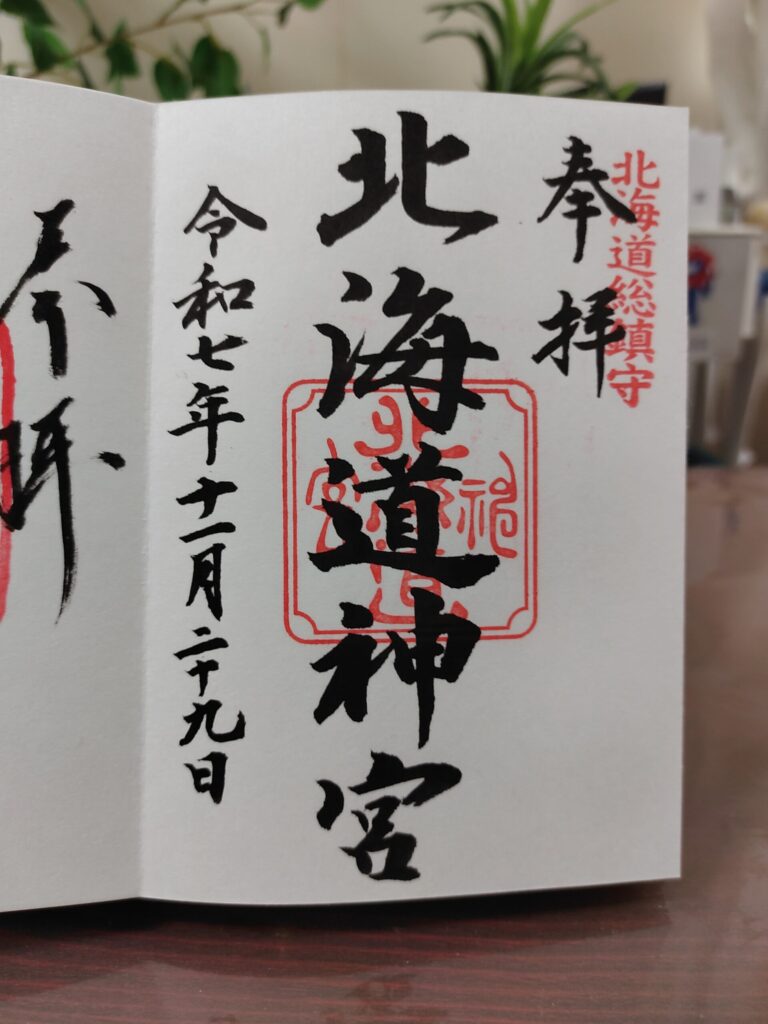 北海道総鎮守
奉拝
北海道神宮
令和七年十一月二十九日
奉拝